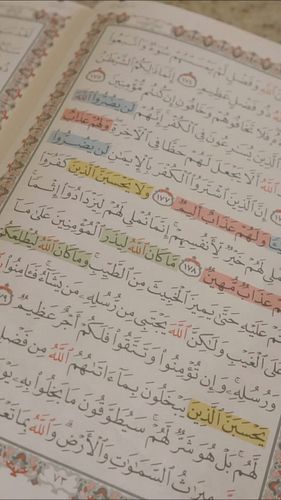 وَفَضْلٍ لَّمْ يَمْسَسْهُمْ سُوٓءٌ وَٱتَّبَعُوا۟
ذُو فَضْلٍ عَظِيمٍ ١٧٤ إِنَّمَا ذَٰلِكُمُ ٱلشَّيْطَٰنُ
فَلَا تَخَافُوهُمْ وَخَافُونِ إِن كُنتُم مُّؤْمِنِينَ ١٧٥
ٱلَّذِينَ يُسَٰرِعُونَ فِى ٱلْكُفْرِ إِنَّهُمْ لَن يَضُرُّوا۟ ٱللَّهَ
ٱللَّهُ أَلَّا يَجْعَلَ لَهُمْ حَظًّا فِى ٱلْءَاخِرَةِ وَلَهُمْ عَذَابٌ
١٧٦ إِنَّ ٱلَّذِينَ ٱشْتَرَوُا۟ ٱلْكُفْرَ بِٱلْإِيمَٰنِ لَن يَضُرُّوا۟
وَلَهُمْ عَذَابٌ أَلِيمٌ ١٧٧ وَلَا يَحْسَبَنَّ ٱلَّذِينَ كَفَرُوٓا۟
لَهُمْ خَيْرٌ لِّأَنفُسِهِمْ إِنَّمَا نُمْلِى لَهُمْ لِيَزْدَادُوٓا۟ إِثْمًا
عَذَابٌ مُّهِينٌ ١٧٨ مَّا كَانَ ٱللَّهُ لِيَذَرَ ٱلْمُؤْمِنِينَ عَلَىٰ مَآ
عَلَيْهِ حَتَّىٰ يَمِيزَ ٱلْخَبِيثَ مِنَ ٱلطَّيِّبِ وَمَا كَانَ ٱللَّهُ لِيُطْلِعَكُمْ
عَلَى ٱلْغَيْبِ وَلَٰكِنَّ ٱللَّهَ يَجْتَبِى مِن رُّسُلِهِۦ مَن يَشَآءُ فَـَٔامِنُوا۟
وَرُسُلِهِۦ وَإِن تُؤْمِنُوا۟ وَتَتَّقُوا۟ فَلَكُمْ أَجْرٌ عَظِيمٌ
يَحْسَبَنَّ ٱلَّذِينَ يَبْخَلُونَ بِمَآ ءَاتَىٰهُمُ ٱللَّهُ مِن فَضْلِهِۦ
لَّهُم بَلْ هُوَ شَرٌّ لَّهُمْ سَيُطَوَّقُونَ مَا بَخِلُوا۟ بِهِۦ
ٱلسَّمَٰوَٰتِ وَٱلْأَرْضِ وَٱللَّهُ بِمَا
٧٣